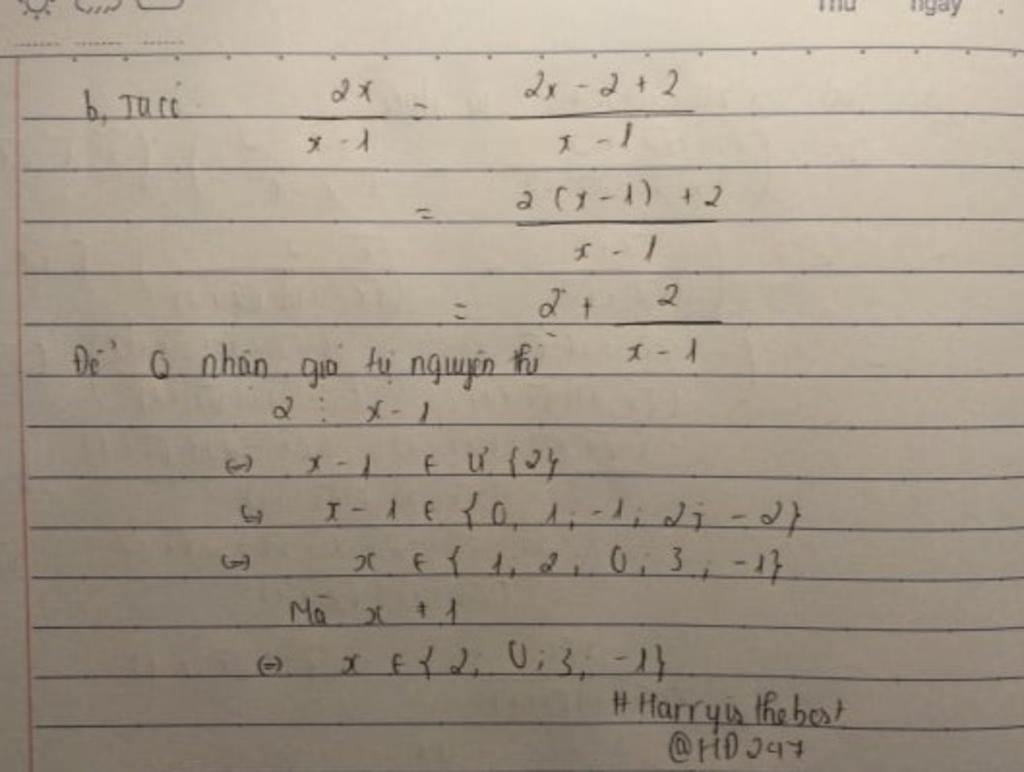 Thứ ngày
b, Ta có 2x / x - 1 = 2x - 2 + 2 / x - 1
= 2 (x - 1) + 2 / x - 1
= 2 + 2 / x - 1
Để Q nhận giá trị nguyên thì
2 ⋮ x - 1
(=) x - 1 ∈ Ư {2}
(=) x - 1 ∈ {0, 1; -1; 2; -2}
(=) x ∈ {1, 2, 0; 3, -1}
Mà x ≠ 1
(=) x ∈ {2; 0; 3; -1}
# Harry is the best
@HD247